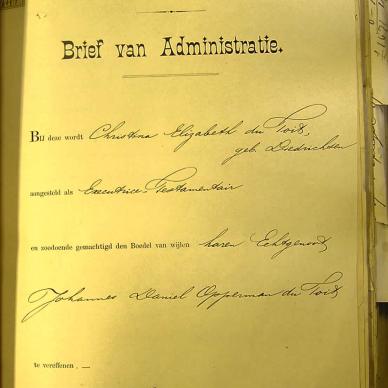 Brief van Administratie.
Bij deze wordt Christina Elizabeth du Toit,
geb. Diedrichsen
aangesteld als Executrice-Testamentair
en zoodoende gemachtigd den Boedel van wijlen haren Echtgenoot
Johannes Daniel Opperman du Toit
te vereffenen. —